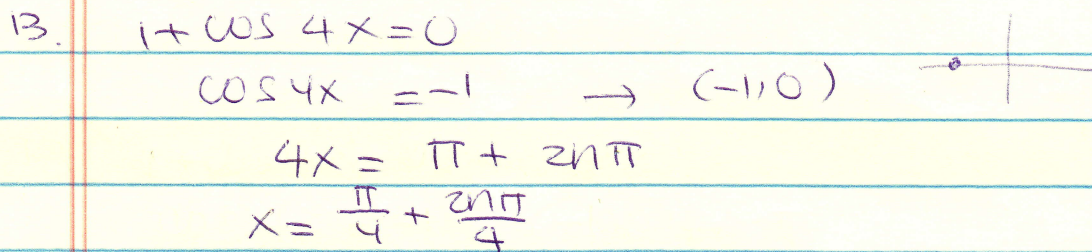 13. 1 + cos 4x = 0
cos 4x = -1 → (-1, 0)
4x = π + 2nπ
x = π/4 + 2nπ/4